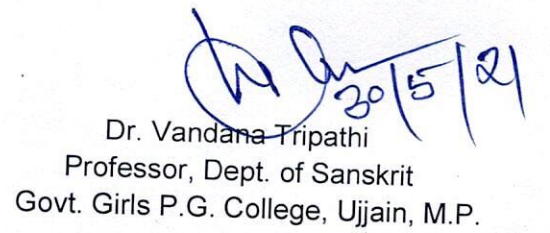 30/5/21
Dr. Vandana Tripathi
Professor, Dept. of Sanskrit
Govt. Girls P.G. College, Ujjain, M.P.